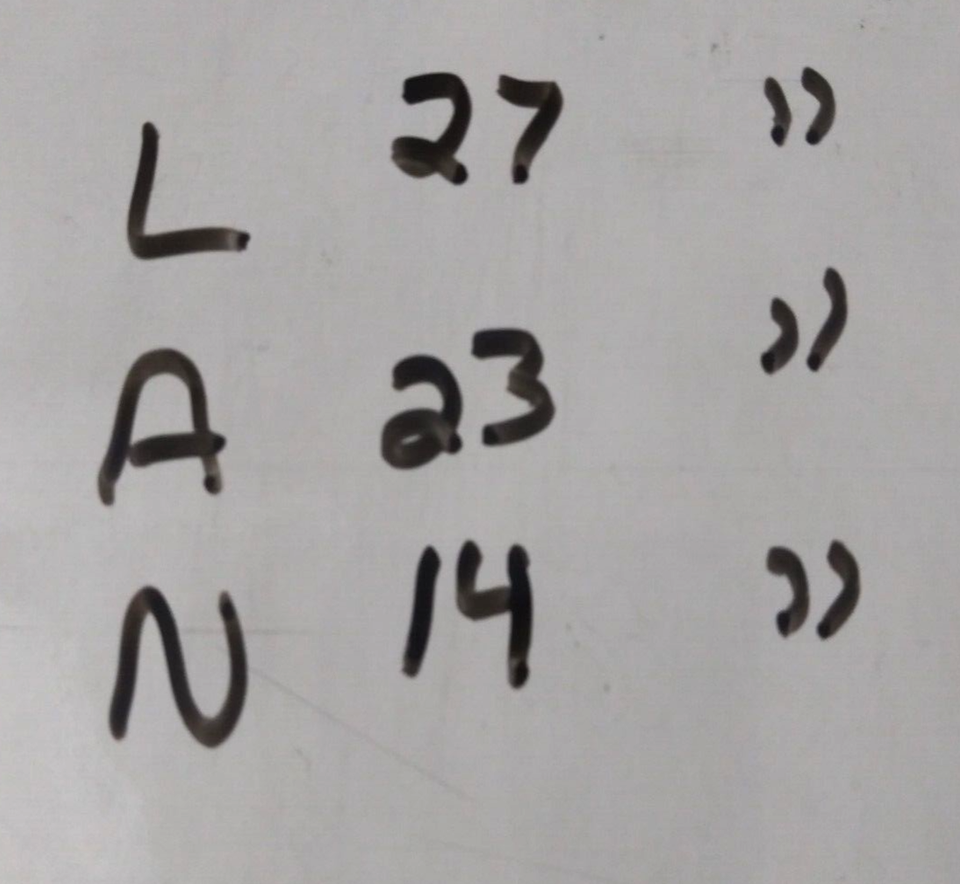 L 27 "
A 23 "
N 14 "